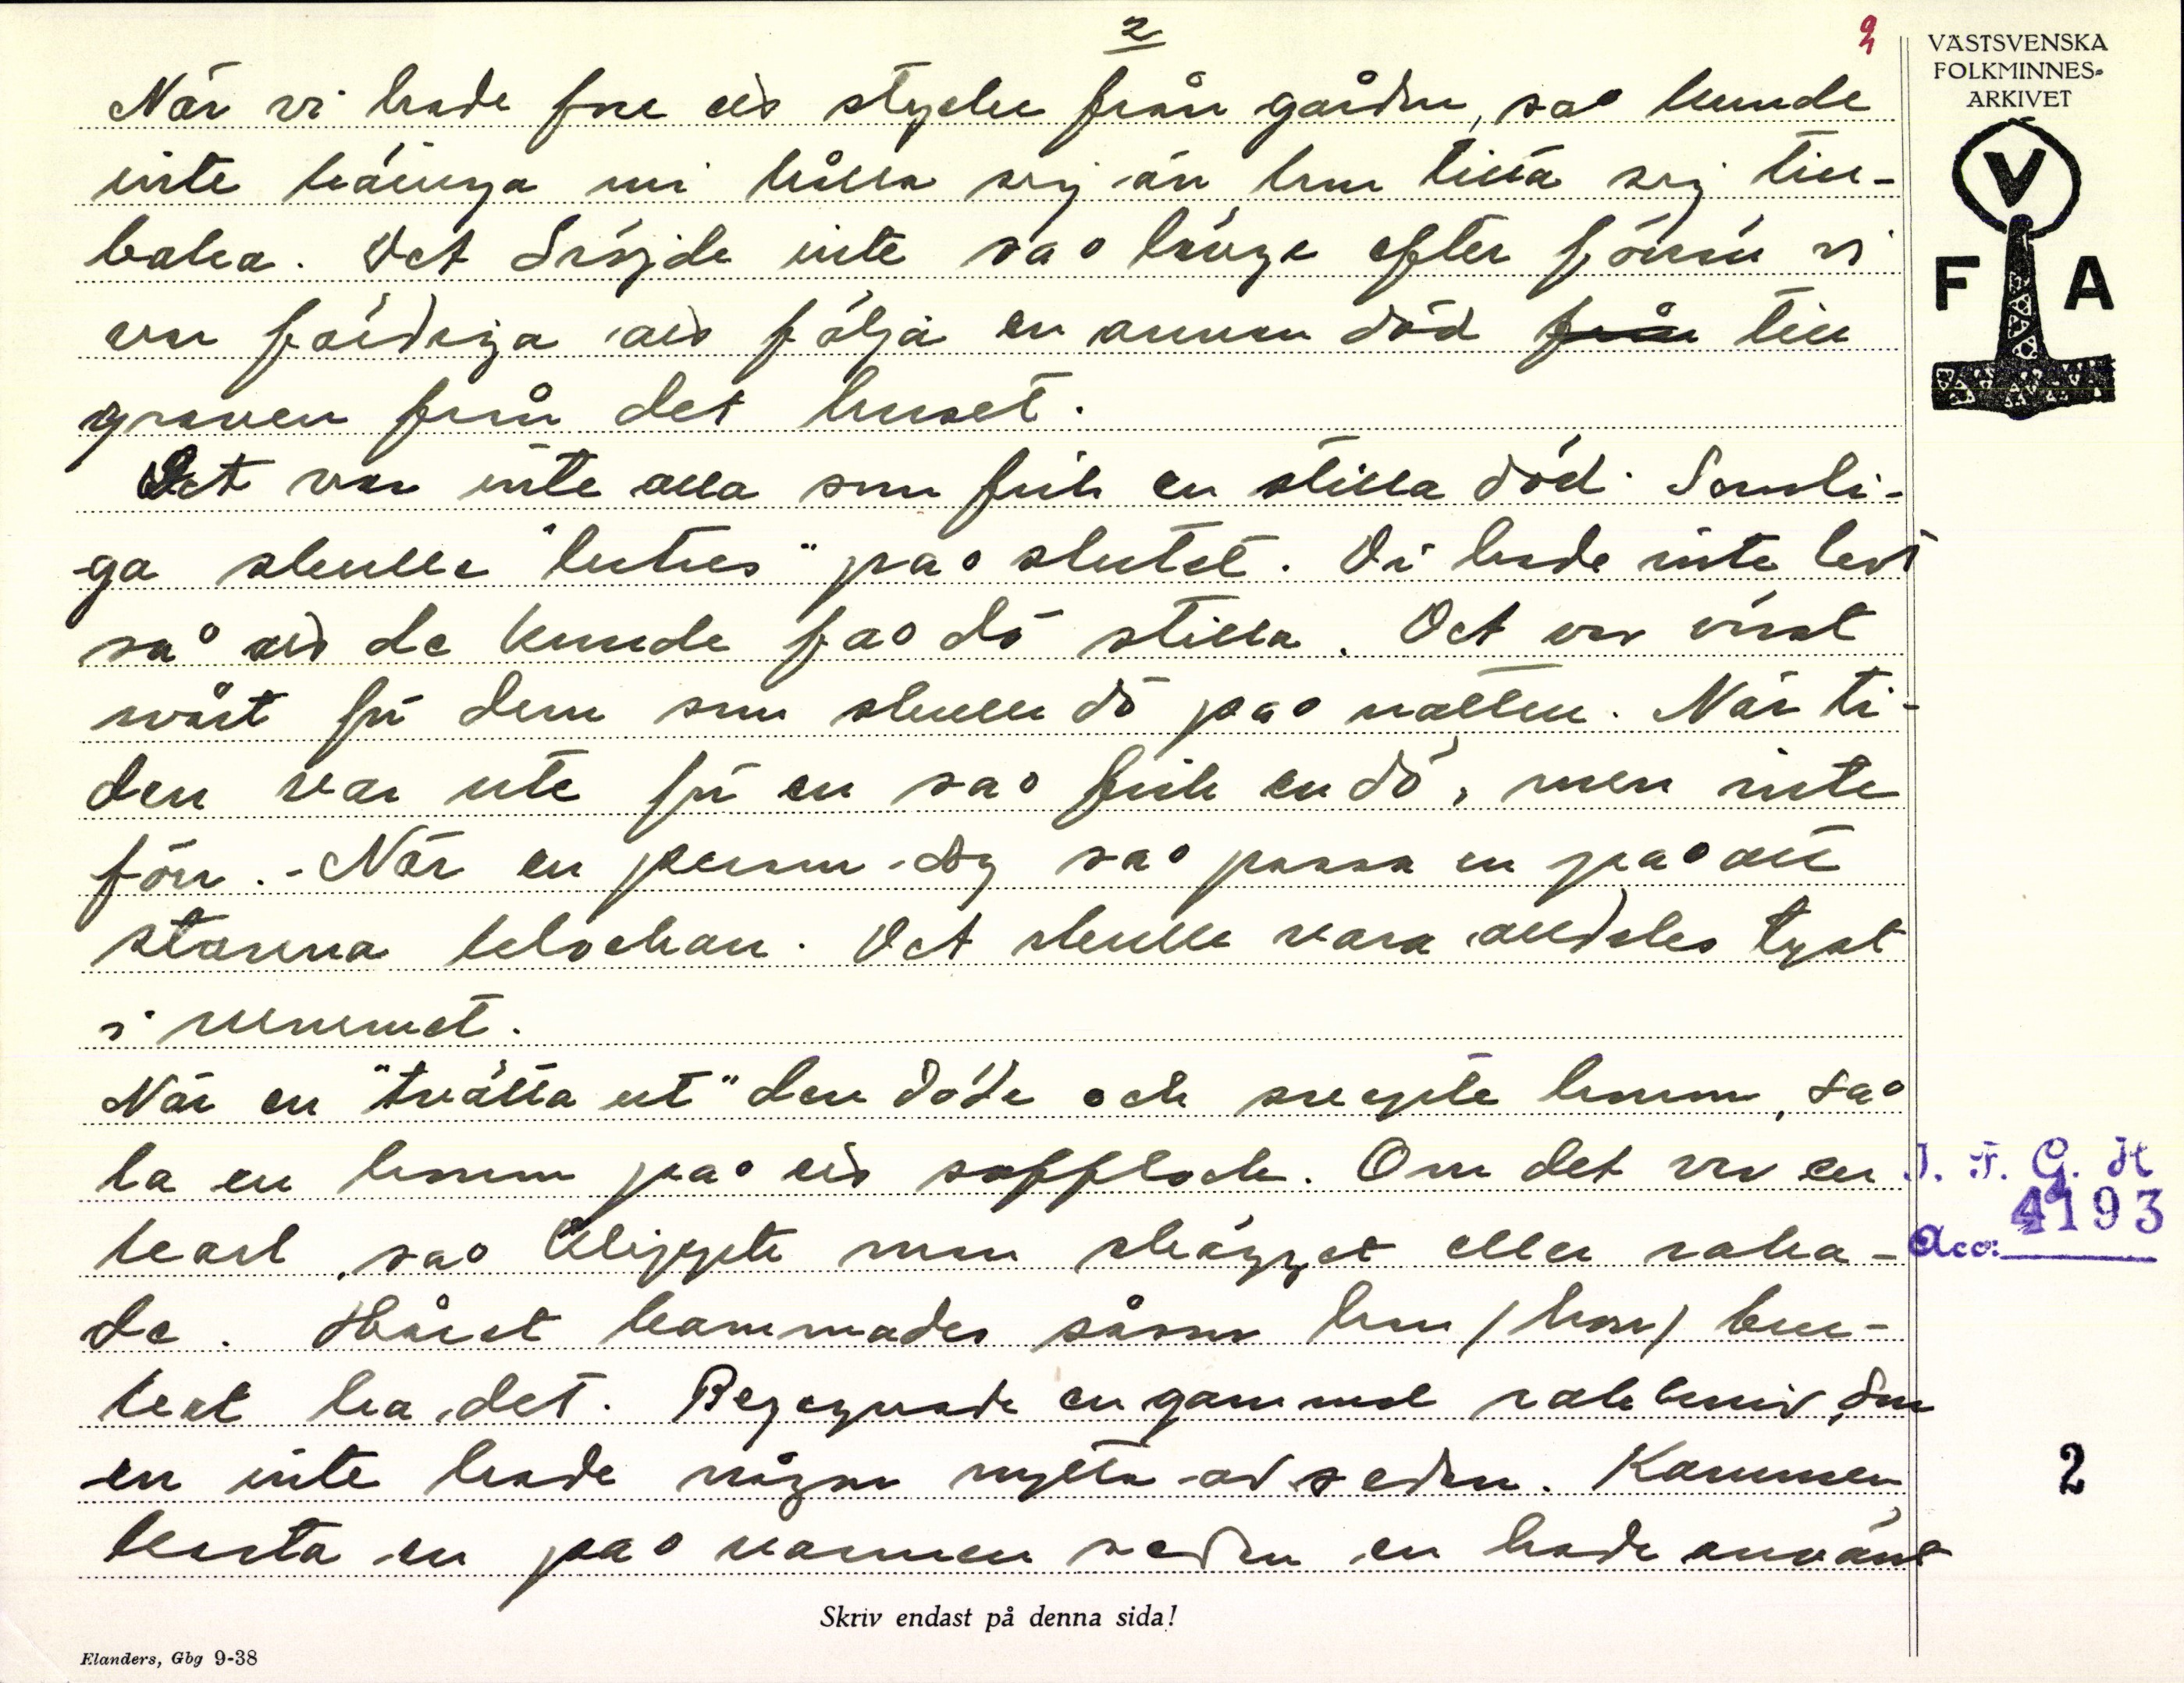 2
När vi hade fore ett stycke från gården, så kunde
inte kärnga mi hålla sej än hon titta sej till-
baka. Det dröjde inte så länge efter förrän vi
var färdiga att följa en annan död från till
graven från det huset.
Det var inte alla som fick en stilla död. Somli-
ga skulle "lutres" på slutet. Di hade inte levt
så att de kunde få dö stilla. Det var värst
svårt för dem som skulle dö på natten. När ti-
den var ute för en så fick en dö, men inte
förr. - När en person dog så passa en på att
stanna klockan. Det skulle vara alldeles tyst
i rummet.
När en "tvätta ut" den döde och svepte honom, så
la en honom på ett sofflock. Om det var en
karl, så klippte man skägget eller raka-
de. Håret kammades såsom han /hon/ bru-
kat ha det. Begagnade en gammal rakkniv, som
en inte hade någon nytta av sedan. Kammen
kasta en på vannen sedan en hade använt
VÄSTSVENSKA
FOLKMINNES-
ARKIVET
V
F A
I. F. G. H
4193
Acc:
2
Skriv endast på denna sida!
Elanders, Gbg 9-38